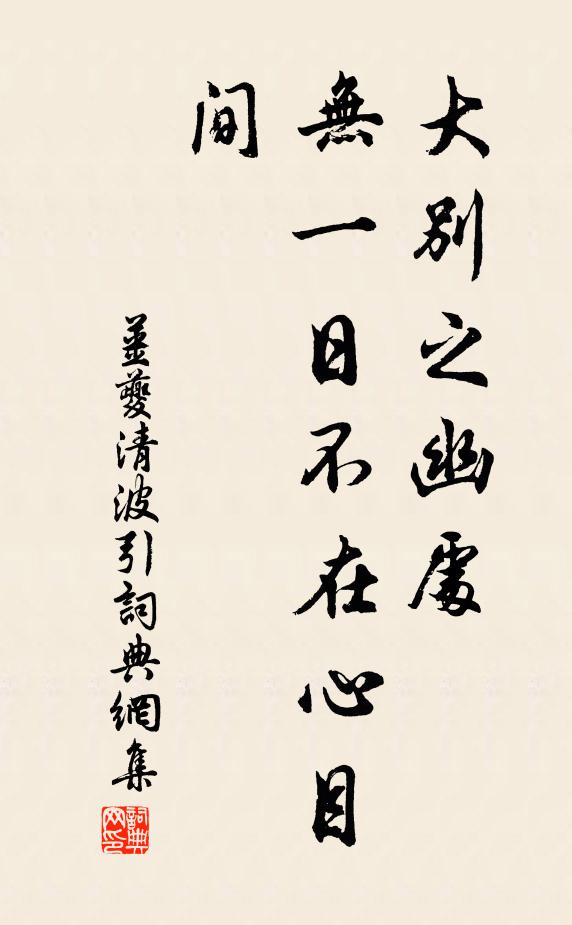 大別之幽處
無一日不在心目
間
姜夔清波引詞典網集
詞典
网印